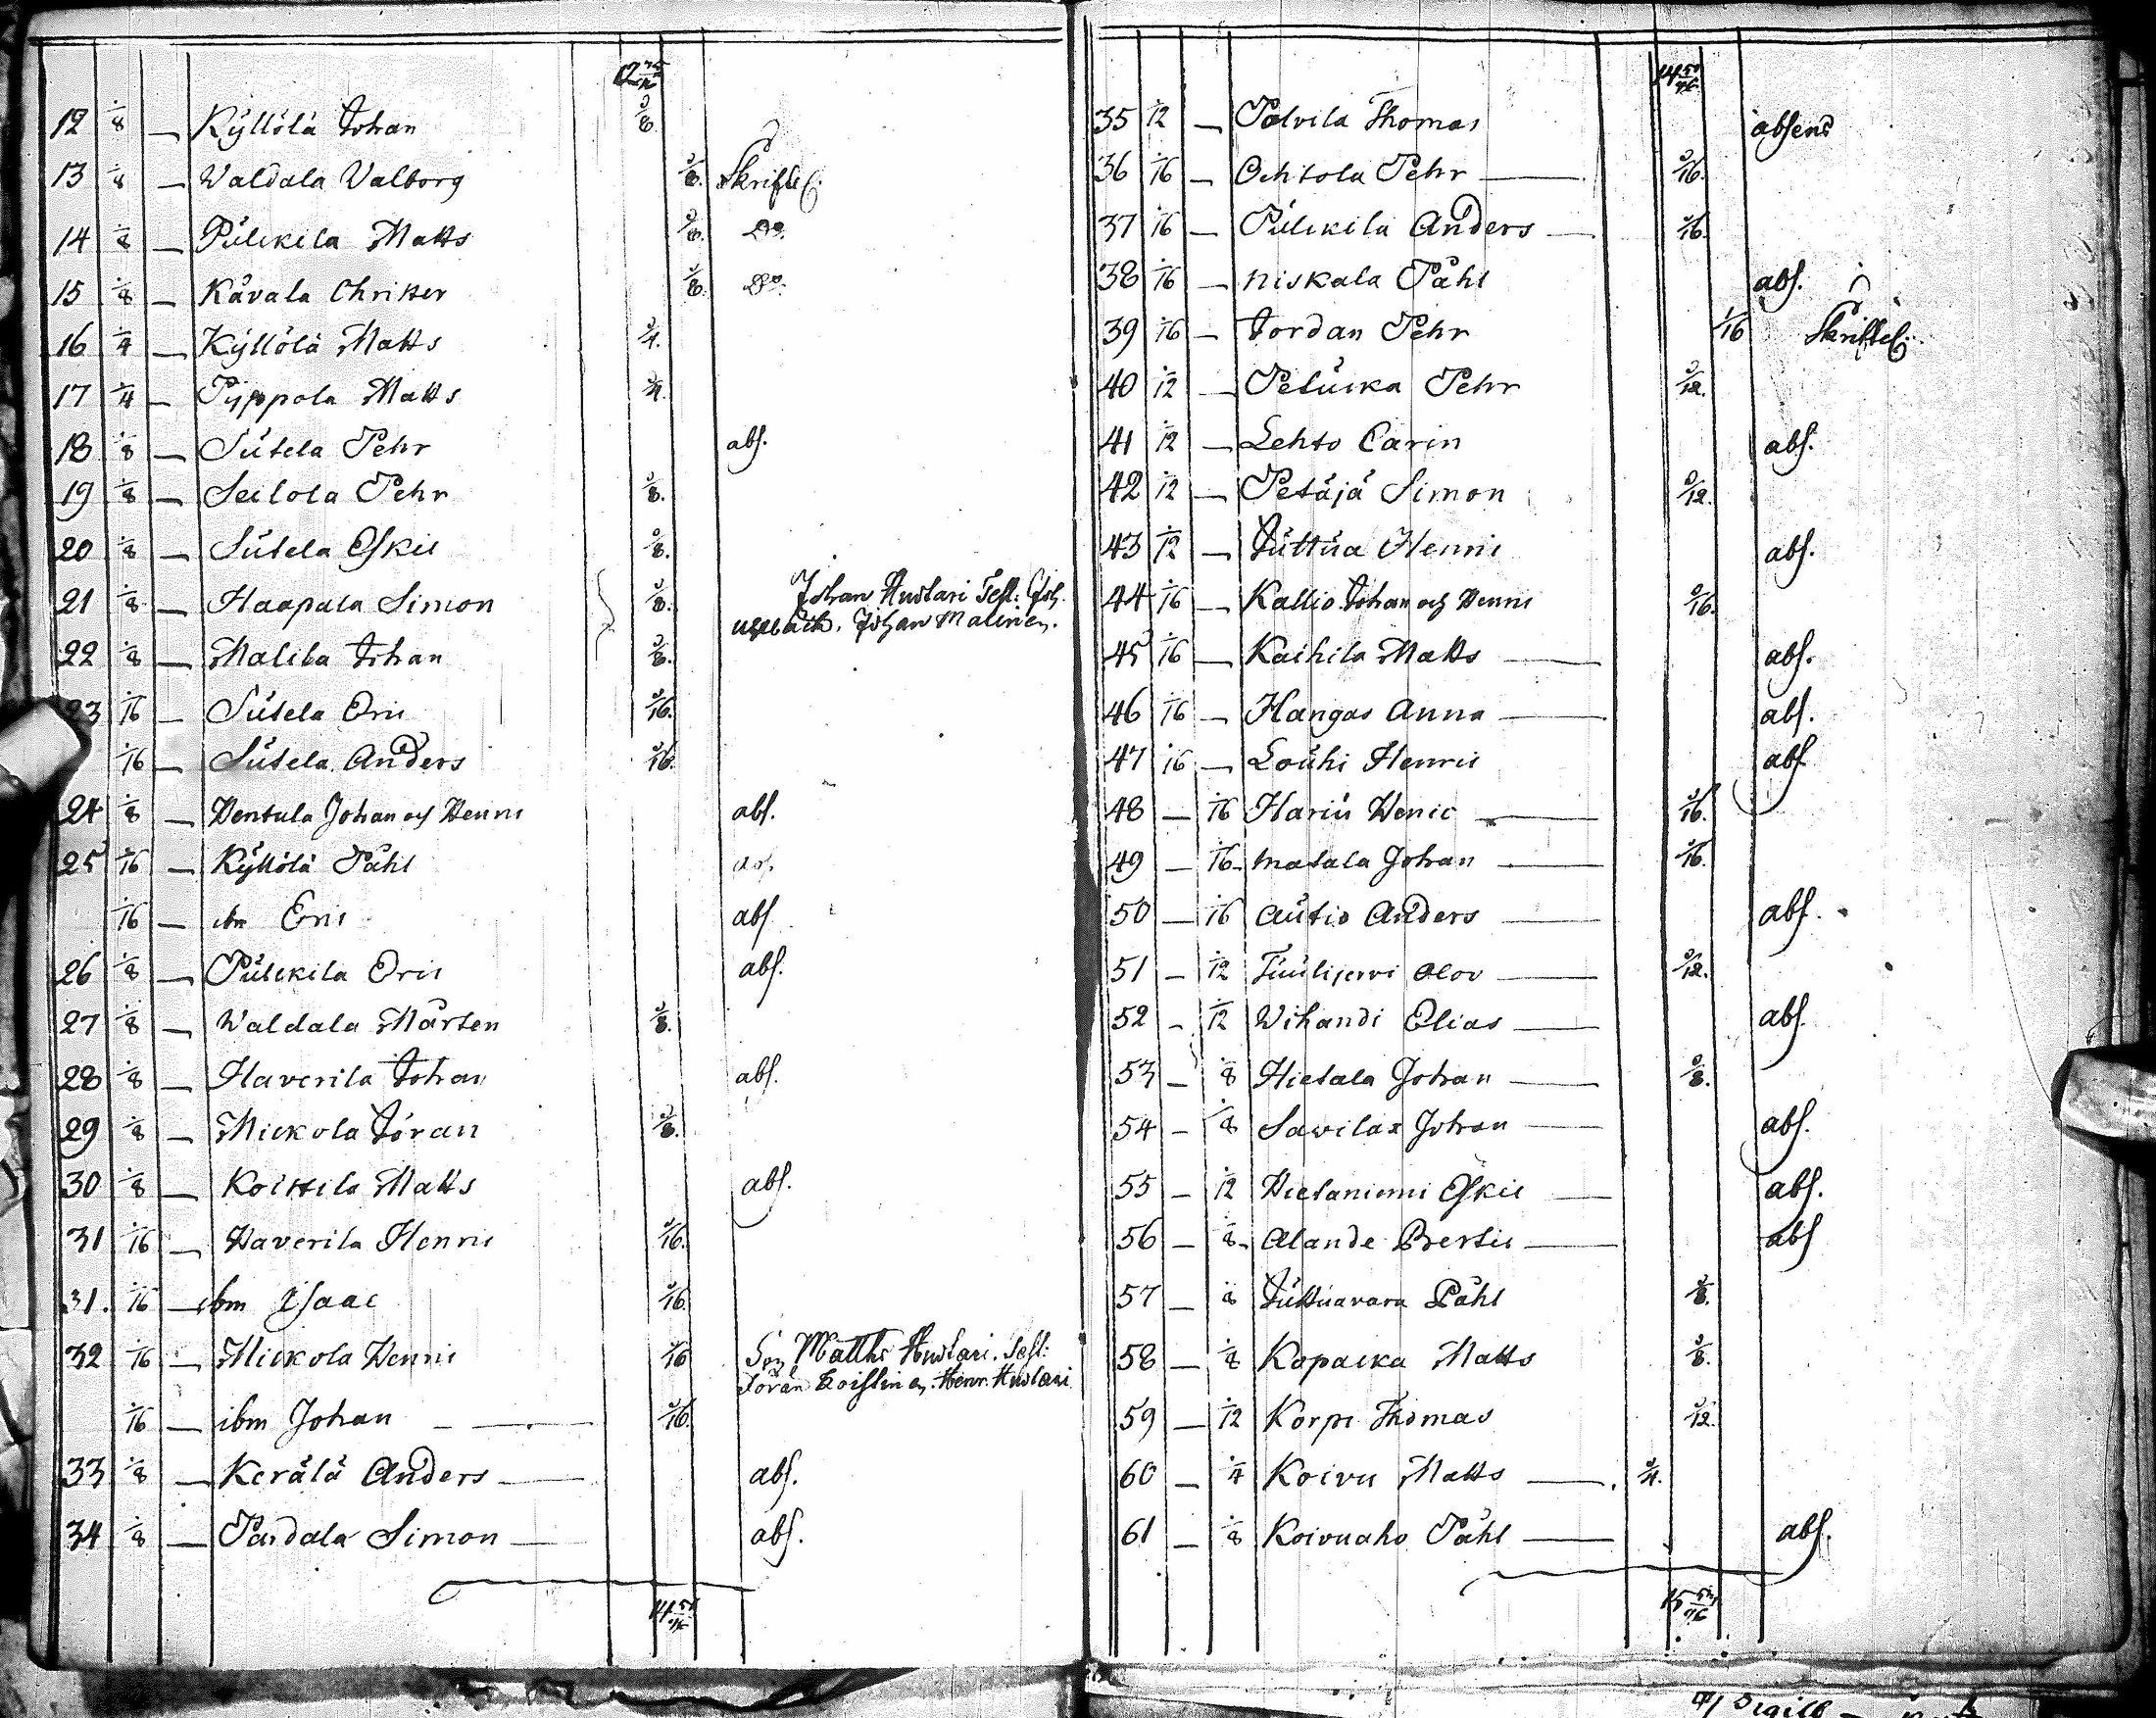 12 1/8 — Kyllölä Johan 1/8
13 1/8 — Waldala Valborg 1/8. Skriftel.
14 1/8 — Pulckila Matts 1/8. Do.
15 1/8 — Kåvala Christer 1/8. Do.
16 1/4 — Kyllölä Matts 1/4.
17 1/4 — Pyppola Matts 1/4.
18 1/8 — Sutela Pehr abs.
19 1/8 — Seilola Pehr 1/8.
20 1/8 — Sutela Eskil 1/8.
21 1/8 — Haapala Simon 1/8. Johan Huotari
22 1/8 — Malila Johan 1/8. Johan Malinen.
23 1/16 — Sutela Eric 1/16.
1/16 — Sutela Anders 1/16.
24 1/8 — Hentula Johan och Henric abs.
25 1/16 — Kyllölä Påhl abs.
1/16 — ibm Eric abs.
26 1/8 — Pulckila Eric abs.
27 1/8 — Waldala Mårten 1/8.
28 1/8 — Haverila Johan abs.
29 1/8 — Mickola Jöran 1/8.
30 1/8 — Koistila Matts abs.
31 1/16 — Haverila Henric 1/16.
31. 1/16 — ibm Isaac 1/16
32 1/16 — Mickola Henric 1/16 Matths Huotari. Test:
Jöran Koistinen. Henr. Huotari
1/16 — ibm Johan — 1/16.
33 1/8 — Kerälä Anders — abs.
34 1/8 — Pardala Simon — abs.
14 51/96
14 51/96
35 1/12 — Palvila Thomas absens
36 1/16 — Ochtola Pehr — 1/16.
37 1/16 — Pulckila Anders — 1/16.
38 1/16 — Niskala Påhl abs.
39 1/16 — Jordan Pehr 1/16 Skriftel.
40 1/12 — Petucka Pehr 1/12.
41 1/12 — Lehto Carin abs.
42 1/12 — Petäjä Simon 1/12.
43 1/12 — Juttua Henric abs.
44 1/16 — Kallio Johan och Henric 1/16.
45 1/16 — Kaihila Matts — abs.
46 1/16 — Hangas Anna — abs.
47 1/16 — Louhi Henric abs
48 — 1/16 Hariu Henric — 1/16.
49 — 1/16 Matala Johan — 1/16.
50 — 1/16 Autio Anders — abs.
51 — 1/12 Tuulijervi Olov — 1/12.
52 — 1/12 Wihandi Elias — abs.
53 — 1/8 Hietala Johan — 1/8.
54 — 1/8 Savilax Johan — abs.
55 — 1/12 Hietaniemi Eskil — abs.
56 — 1/8 Alande Bertil — abs
57 — 1/8 Juttuavara Påhl 1/8.
58 — 1/8 Kopacka Matts 1/8.
59 — 1/12 Korpi Thomas 1/12.
60 — 1/4 Koivu Matts — 1/4.
61 — 1/8 Koivuaho Påhl — abs.